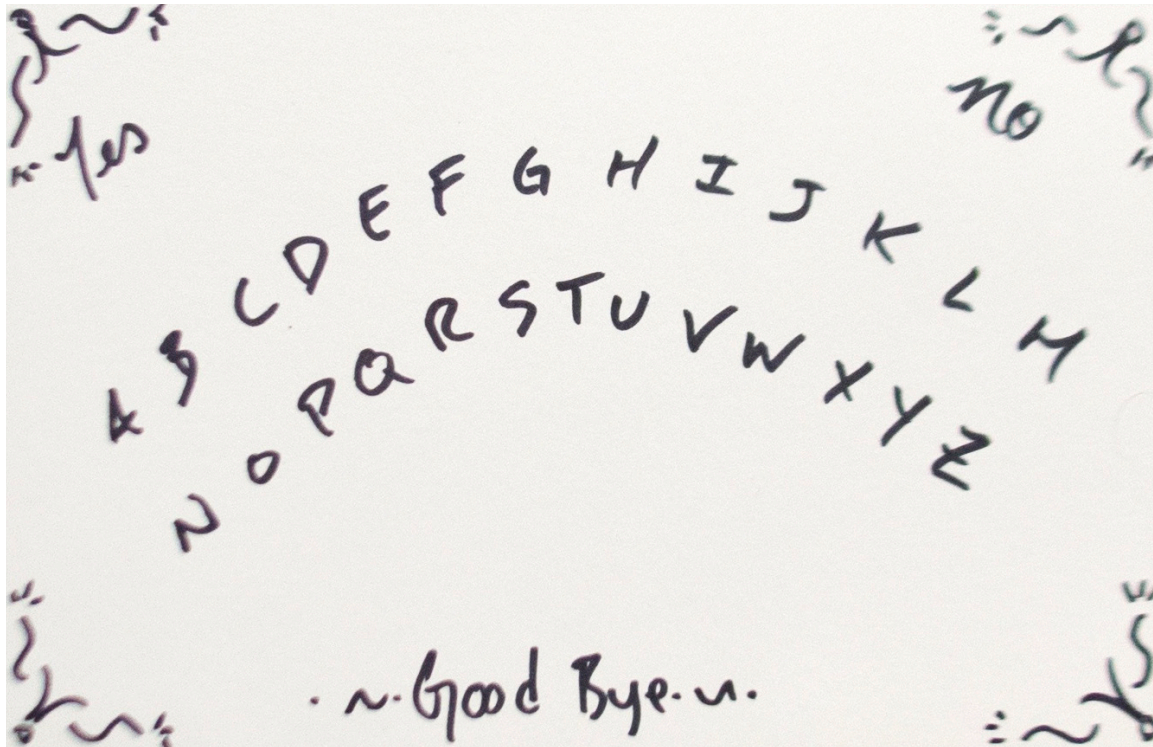 Yes
No
A B C D E F G H I J K L M
N O P Q R S T U V W X Y Z
Good Bye.